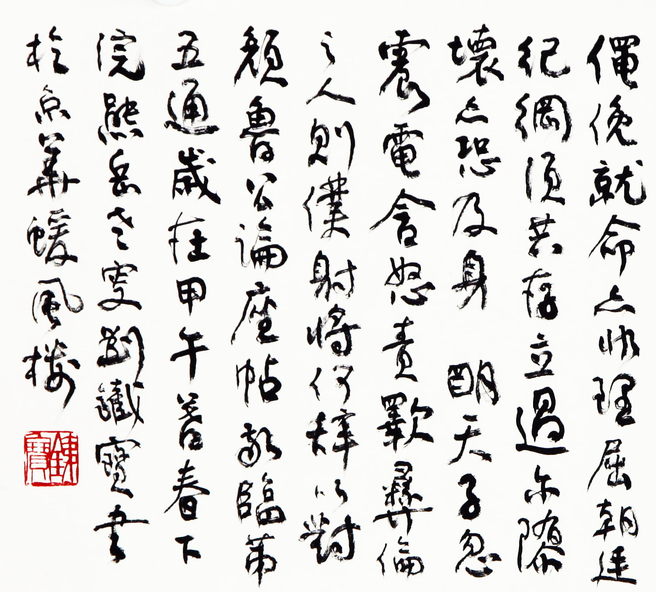 僶俛就命亦非理屈朝廷
紀綱須共存立過尔隳
壞亦恐及身 明天子忽
震電含怒責斁彝倫
之人則僕射將何辞以對
顏魯公論座帖敬臨第
五通歲在甲午暮春下
浣熊岳老叟劉鐵寶書
於京華暖風樓
鐵寶